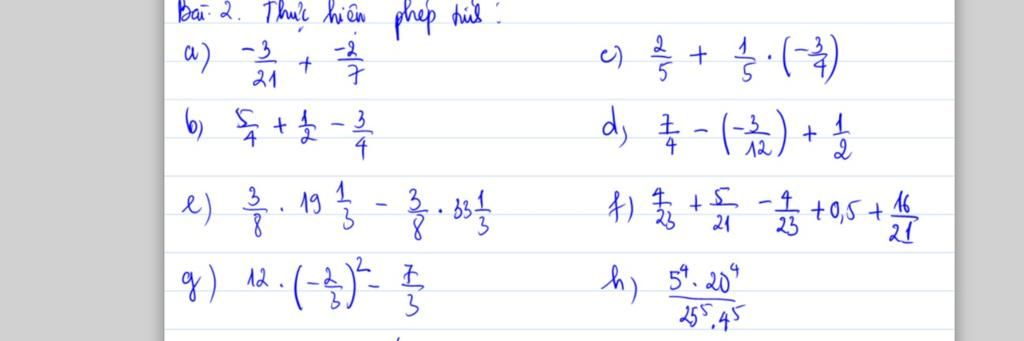 Bài 2. Thực hiện phép tính:
a) \frac{-3}{21} + \frac{-2}{7}
c) \frac{2}{5} + \frac{1}{5} . (-\frac{3}{4})
b) \frac{5}{4} + \frac{1}{2} - \frac{3}{4}
d) \frac{7}{4} - (-\frac{3}{12}) + \frac{1}{2}
e) \frac{3}{8} . 19 \frac{1}{3} - \frac{3}{8} . 33 \frac{1}{3}
f) \frac{4}{23} + \frac{5}{21} - \frac{4}{23} + 0,5 + \frac{16}{21}
g) 12 . (-\frac{2}{3})^2 - \frac{7}{3}
h) \frac{5^4 . 20^4}{25^5 . 4^5}